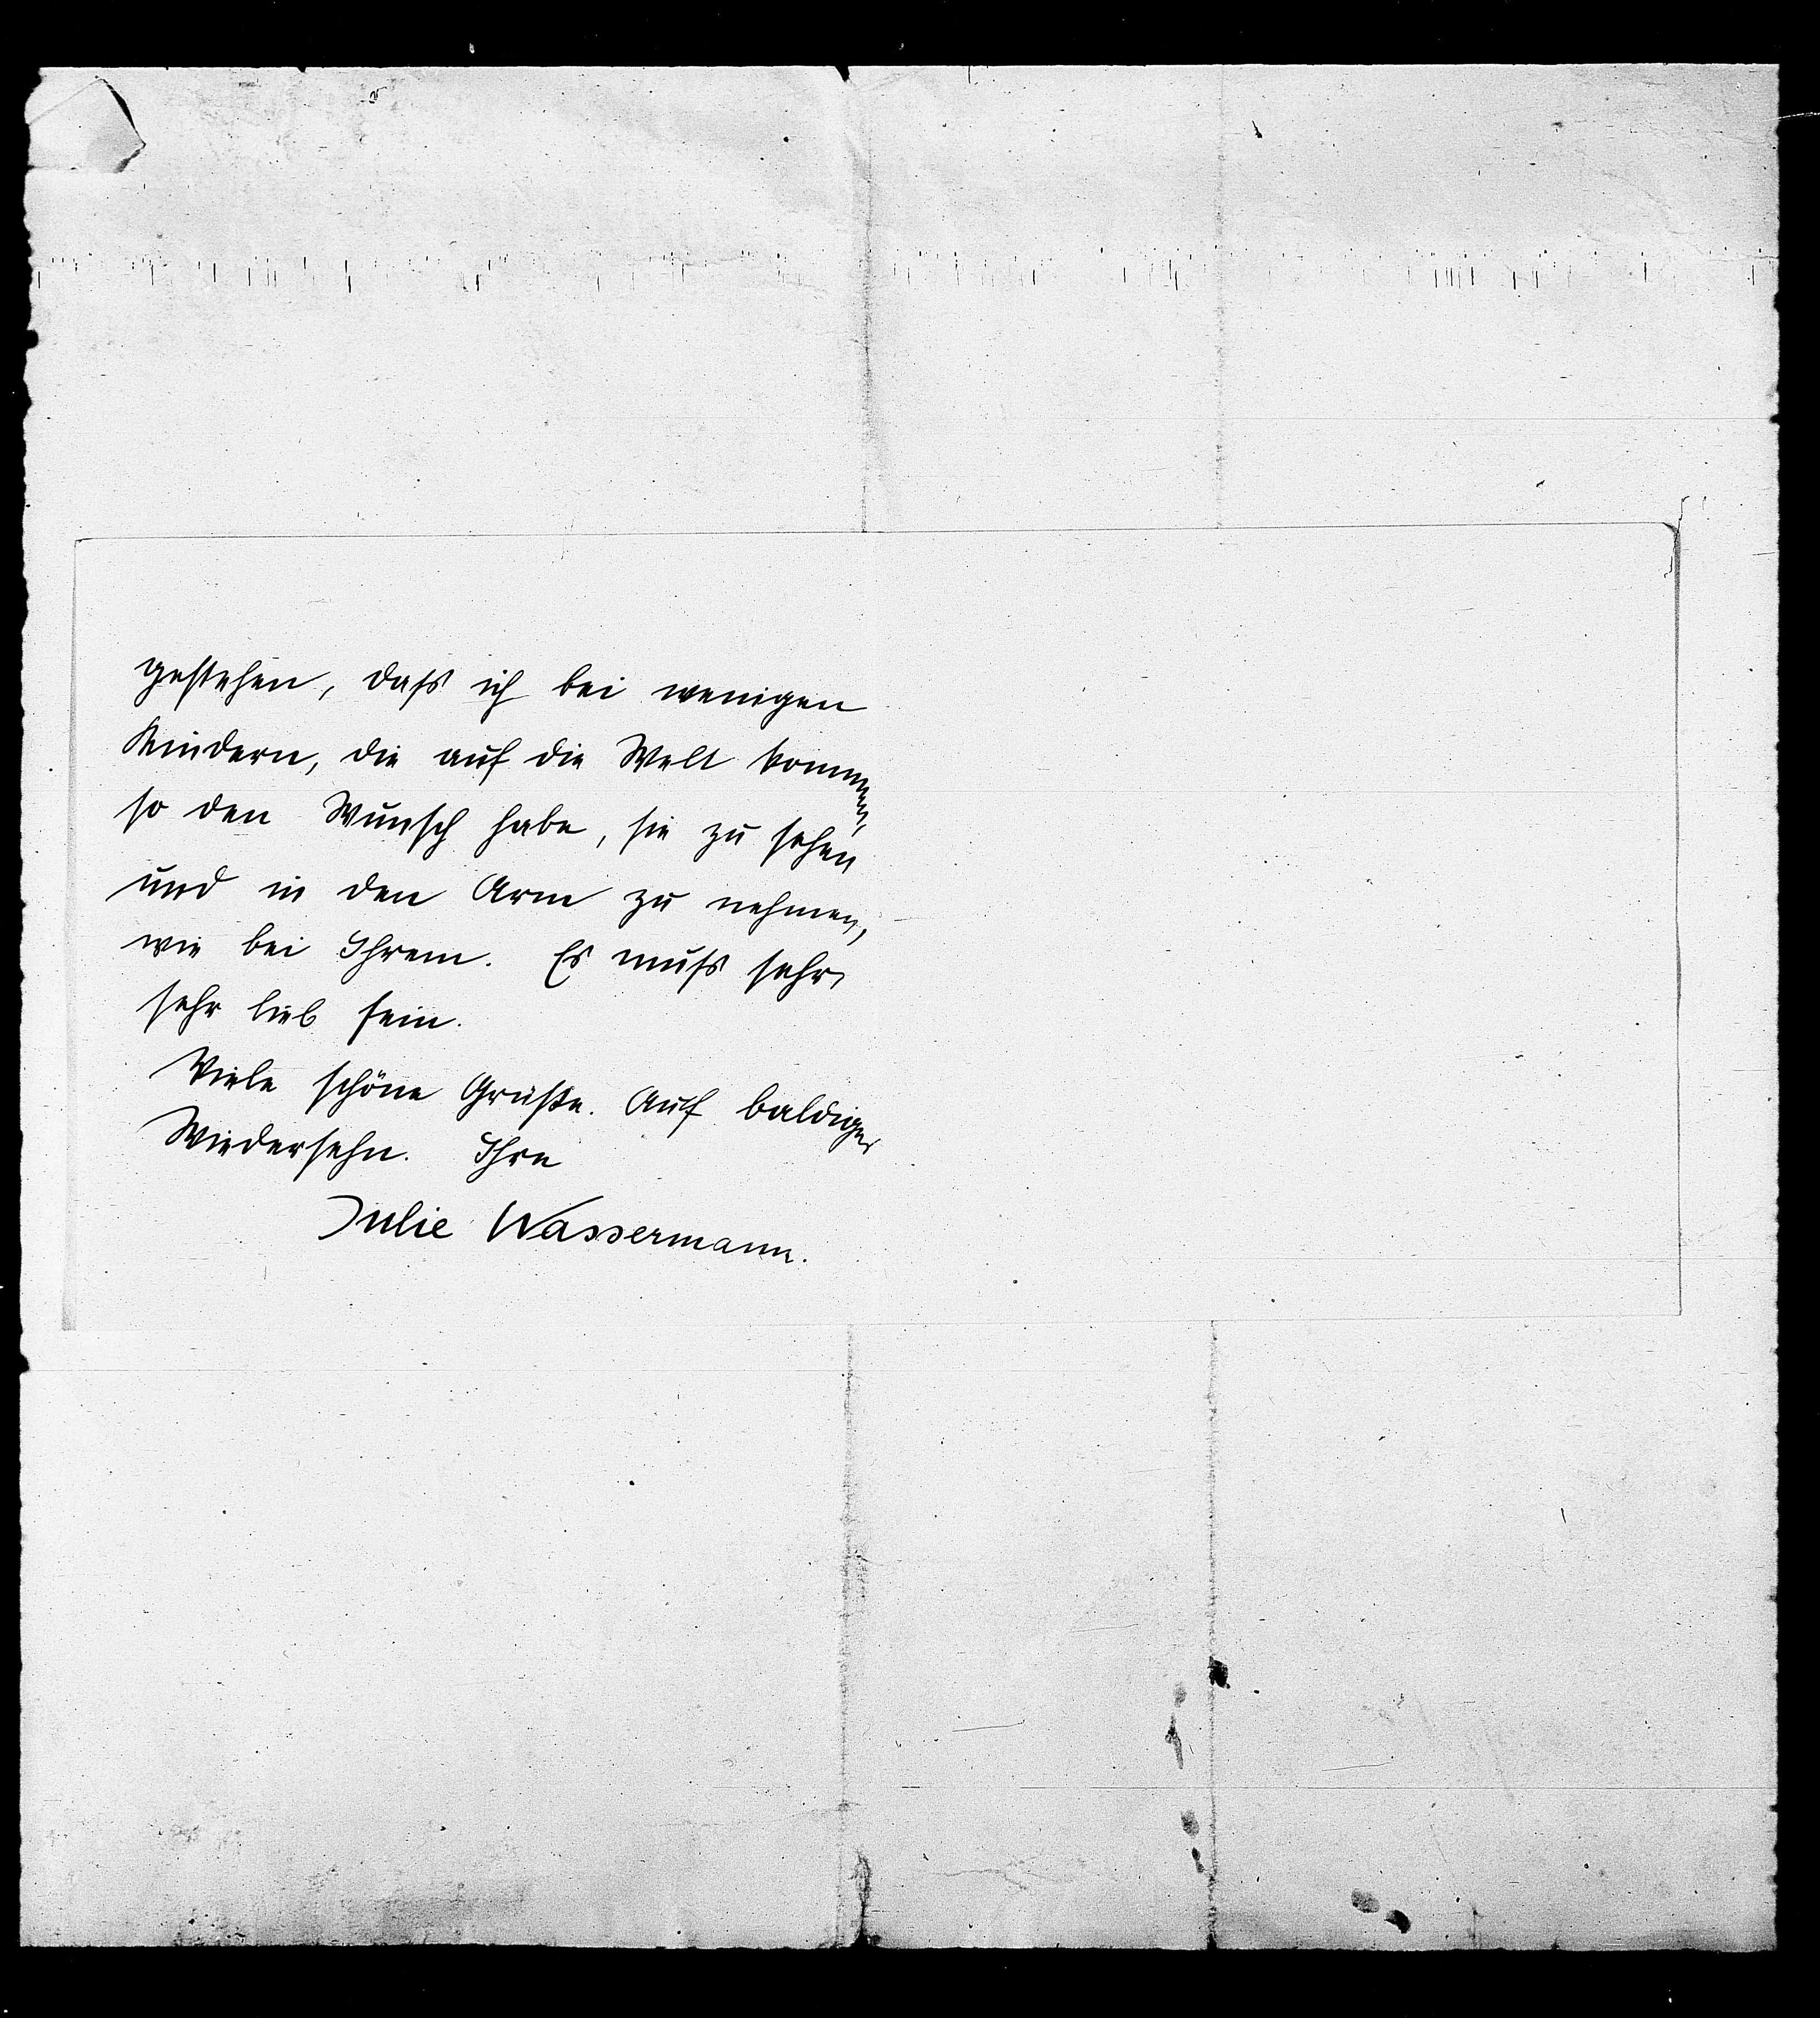 gestehen, dass ich bei wenigen
Kindern, die auf die Welt kommen,
so den Wunsch habe, sie zu sehen
und in den Arm zu nehmen,
wie bei Ihrem. Es muss sehr,
sehr lieb sein.
Viele schöne Grüße. Auf baldiges
Wiedersehn. Ihre
Julie Wassermann.